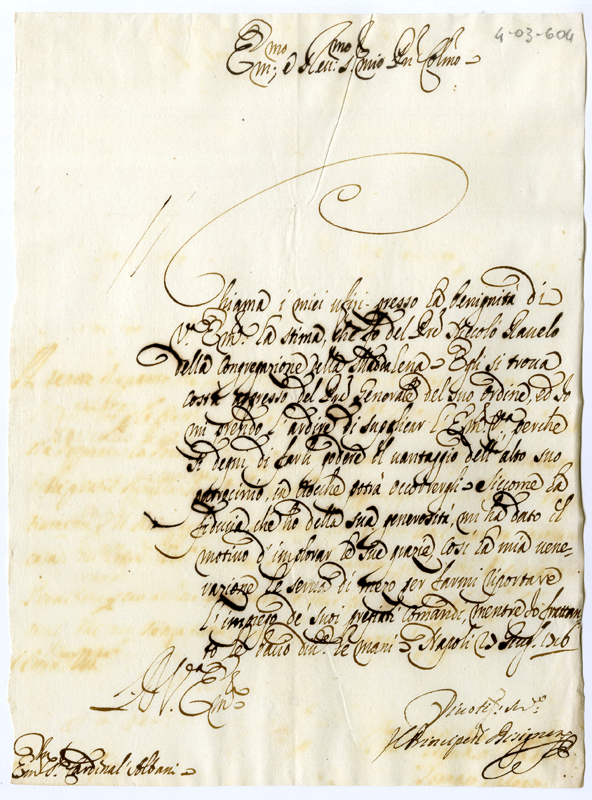 4-03-604
Em.mo e Rev.mo S.r mio P.n Col.mo
i miei ufizi presso la benignità di
V.a Em.a la stima, che fo del P.re Nicolò
della Congregazione della Maddalena. Egli si trova
costà appresso del P.re Generale del suo ordine, ed Io
mi prendo l'ardire di supplicar l'Em. V.ra perche
si degni di farli godere il vantaggio dell'alto suo
patrocinio, in ciò che potrà occorrergli. Siccome la
fiducia che hò della sua generosità, mi hà dato il
motivo d'implorar le sue grazie, così la mia vene-
razione le serva di mezo per farmi riportare
l'impiego de' suoi pregiati comandi, mentre Io frattan-
to le bacio le mani. Napoli 27
D. V. Em.a
Divotis.o
Il Principe di Bisignano
Em.o S.r Cardinal' Albani